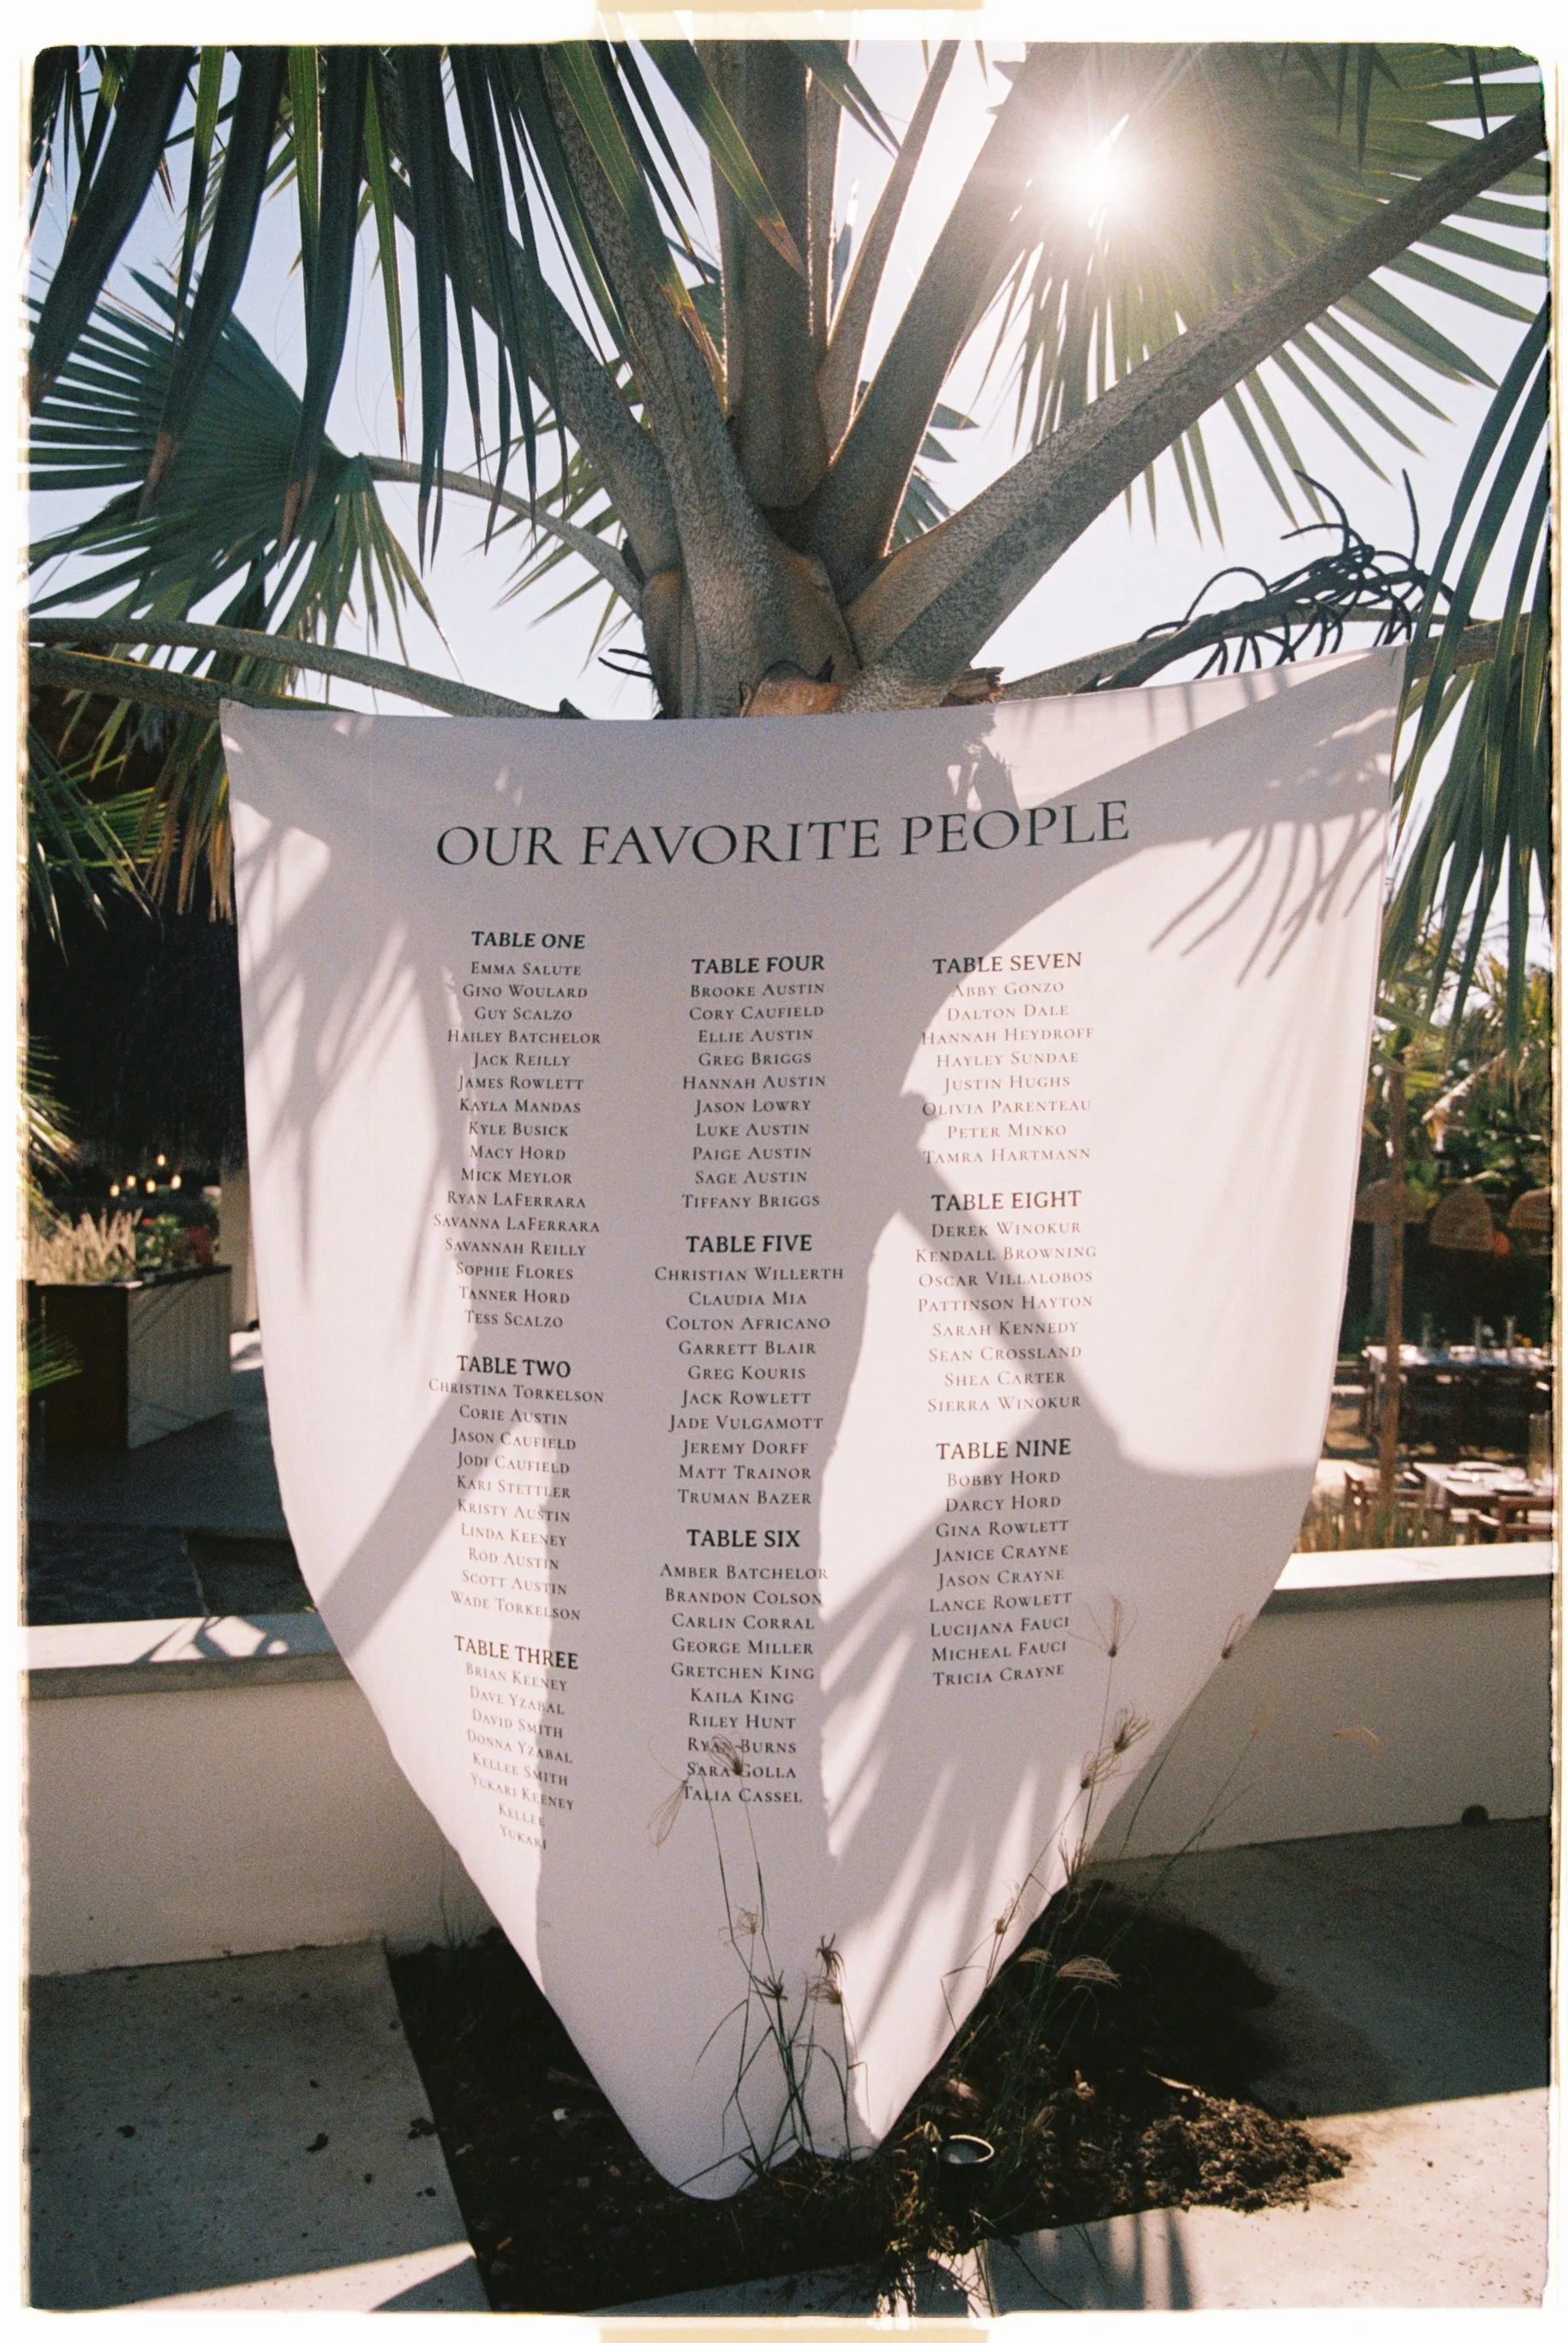 OUR FAVORITE PEOPLE
TABLE ONE
EMMA SALUTE
GINO WOULARD
GUY SCALZO
HAILEY BATCHELOR
JACK REILLY
JAMES ROWLETT
KAYLA MANDAS
KYLE BUSICK
MACY HORD
MICK MEYLOR
RYAN LAFERRARA
SAVANNA LAFERRARA
SAVANNAH REILLY
SOPHIE FLORES
TANNER HORD
TESS SCALZO
TABLE TWO
CHRISTINA TORKELSON
CORIE AUSTIN
JASON CAUFIELD
JODI CAUFIELD
KARI STETTLER
KRISTY AUSTIN
LINDA KEENEY
ROD AUSTIN
SCOTT AUSTIN
WADE TORKELSON
TABLE THREE
BRIAN KEENEY
DAVE YZABAL
DAVID SMITH
DONNA YZABAL
KELLEE SMITH
YUKARI KEENEY
KELLEE
YUKARI
TABLE FOUR
BROOKE AUSTIN
CORY CAUFIELD
ELLIE AUSTIN
GREG BRIGGS
HANNAH AUSTIN
JASON LOWRY
LUKE AUSTIN
PAIGE AUSTIN
SAGE AUSTIN
TIFFANY BRIGGS
TABLE FIVE
CHRISTIAN WILLERTH
CLAUDIA MIA
COLTON AFRICANO
GARRETT BLAIR
GREG KOURIS
JACK ROWLETT
JADE VULGAMOTT
JEREMY DORFF
MATT TRAINOR
TRUMAN BAZER
TABLE SIX
AMBER BATCHELOR
BRANDON COLSON
CARLIN CORRAL
GEORGE MILLER
GRETCHEN KING
KAILA KING
RILEY HUNT
RYAN BURNS
SARA GOLLA
TALIA CASSEL
TABLE SEVEN
ABBY GONZO
DALTON DALE
HANNAH HEYDROFF
HAYLEY SUNDAE
JUSTIN HUGHS
OLIVIA PARENTEAU
PETER MINKO
TAMRA HARTMANN
TABLE EIGHT
DEREK WINOKUR
KENDALL BROWNING
OSCAR VILLALOBOS
PATTINSON HAYTON
SARAH KENNEDY
SEAN CROSSLAND
SHEA CARTER
SIERRA WINOKUR
TABLE NINE
BOBBY HORD
DARCY HORD
GINA ROWLETT
JANICE CRAYNE
JASON CRAYNE
LANCE ROWLETT
LUCIJANA FAUCI
MICHEAL FAUCI
TRICIA CRAYNE